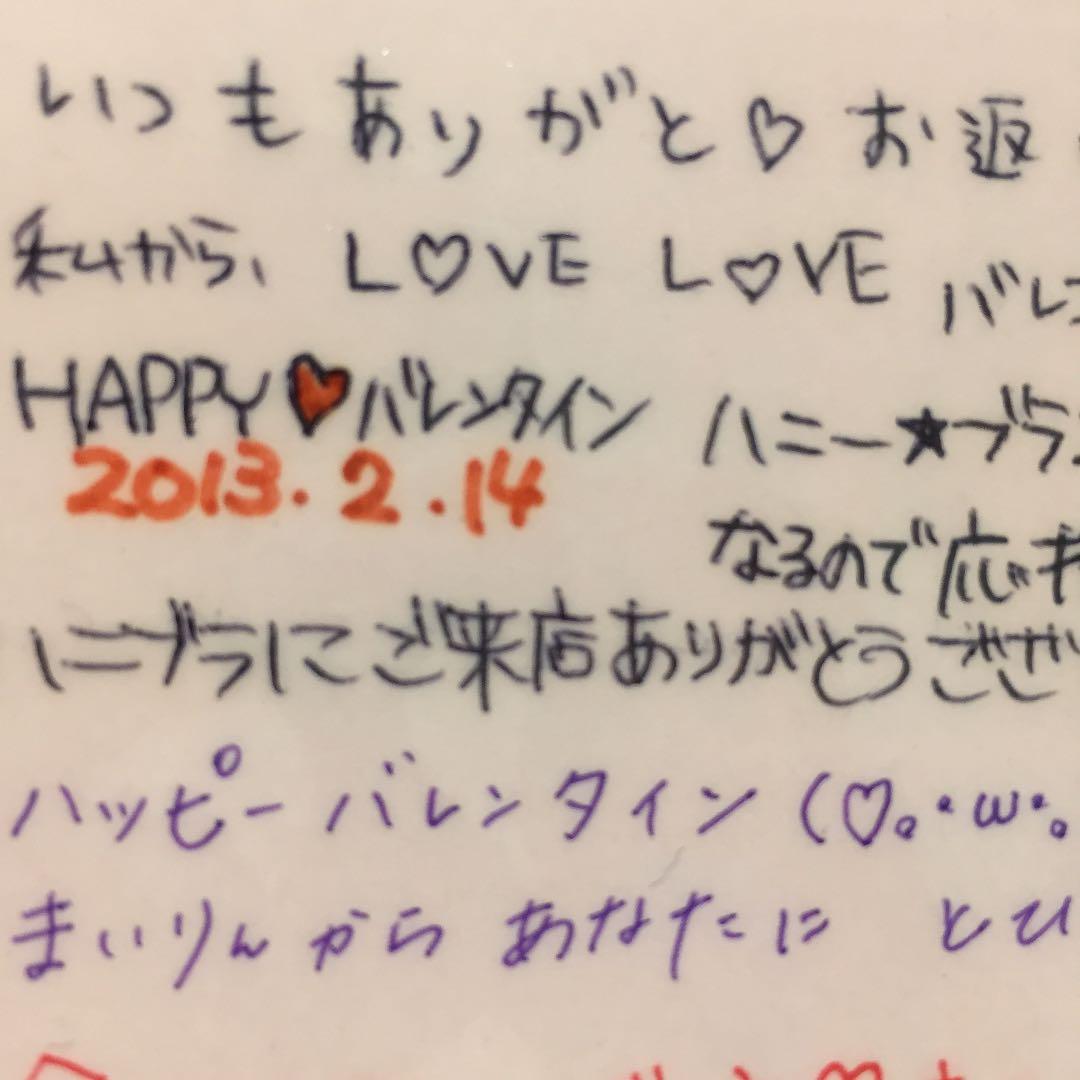 いつもありがと♡お返
私から、L♡VE L♡VE バレン
HAPPY♥バレンタイン ハニー★ブラ
2013.2.14
なるので応
ハニーブラにご来店ありがとうござ
ハッピーバレンタイン(♡。・ω・。
まいりんから あなたに とび